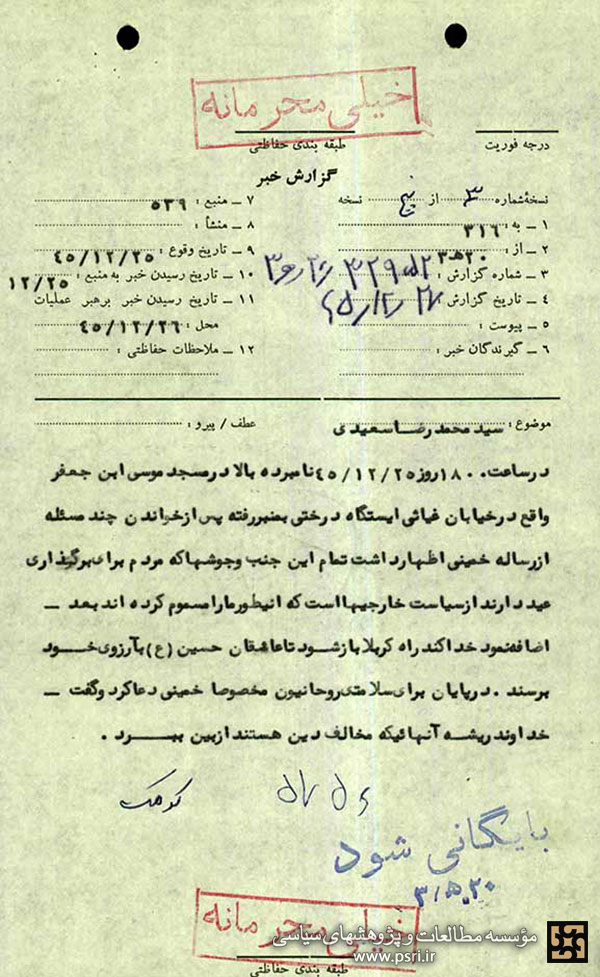 خیلی محرمانه
درجه فوریت
طبقه بندی حفاظتی
گزارش خبر
نسخهٔ شماره ۳ از پنج نسخه
۱ ـ به : ۳۱۶
۲ ـ از : ۲۰ﻫ۳
۳ ـ شماره گزارش :
۴ ـ تاریخ گزارش :
۵ ـ پیوست :
۶ ـ گیرندگان خبر :
۷ ـ منبع : ۵۳۹
۸ ـ منشأ :
۹ ـ تاریخ وقوع : ۴۵/۱۲/۲۵
۱۰ ـ تاریخ رسیدن خبر به منبع : ۱۲/۲۵
۱۱ ـ تاریخ رسیدن خبر برهبر عملیات
محل : ۴۵/۱۲/۲۶
۱۲ ـ ملاحظات حفاظتی :
موضوع : سید محمد رضا سعیدی
عطف / پیرو :
در ساعت ۱۸۰۰ روز ۴۵/۱۲/۲۵ نامبرده بالا در مسجد موسی ابن جعفر
واقع در خیابان غیاثی ایستگاه درختی بمنبر رفته پس از خواندن چند مسئله
از رساله خمینی اظهار داشت تمام این جنب و جوشها که مردم برای برگذاری
عید دارند از سیاست خارجیها است که اینطور ما را مسموم کرده اند بعد ـ
اضافه نمود خدا کند راه کربلا باز شود تا عاشقان حسین (ع) بآرزوی خود
برسند . در پایان برای سلامتی روحانیون مخصوصا خمینی دعا کرد و گفت ـ
خداوند ریشه آنهائیکه مخالف دین هستند از بین ببرد .
بایگانی شود
خیلی محرمانه
طبقه بندی حفاظتی
مؤسسه مطالعات و پژوهشهای سیاسی
www.psri.ir